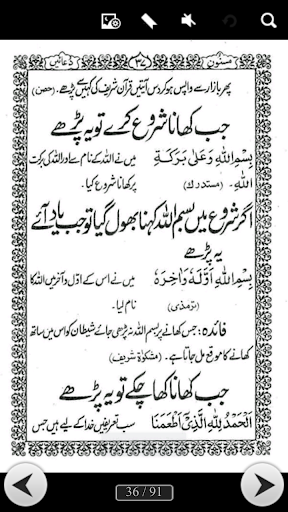 مسنون ﴿۳۷﴾ دعائیں
پھر بازار سے واپس ہو کر دس آیتیں قرآن شریف کی کہیں سے پڑھے۔ (حصن)
جب کھانا شروع کرے تو یہ پڑھے
بِسْمِ اللهِ وَعَلىٰ بَرَكَةِ میں نے اللہ کے نام سے اور اللہ کی برکت
اللهِ۔ (مستدرک) پر کھانا شروع کیا۔
اگر شروع میں بسم اللہ کہنا بھول گیا تو جب یاد آئے
یہ پڑھے
بِسْمِ اللهِ اَوَّلَهٗ وَاٰخِرَهٗ میں نے اس کے اوّل و آخر میں اللہ کا
(ترمذی) نام لیا۔
فائدہ: جس کھانے پر بسم اللہ نہ پڑھی جائے شیطان کو اس میں ساتھ
کھانے کا موقع مل جاتا ہے۔ (مشکوٰۃ شریف)
جب کھانا کھا چکے تو یہ پڑھے
اَلْحَمْدُ لِلّٰهِ الَّذِيْ اَطْعَمَنَا سب تعریفیں خدا کے لیے ہیں جس
36 / 91